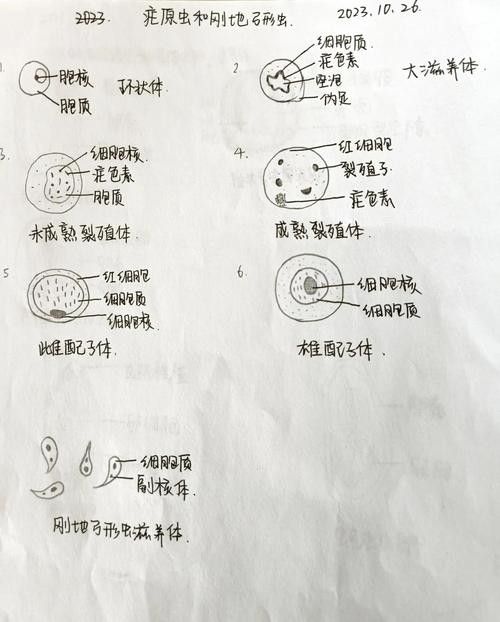 2023. 疟原虫和刚地弓形虫. 2023.10.26.
1.
胞核
胞质
环状体
2.
细胞质.
疟色素
空泡
伪足
大滋养体.
3.
细胞核.
疟色素
胞质
未成熟裂殖体.
4.
红细胞
裂殖子
疟色素
成熟裂殖体.
5
红细胞
细胞质
细胞核
雌配子体.
6.
细胞核
细胞质.
雄配子体.
细胞质
副核体.
刚地弓形虫滋养体.